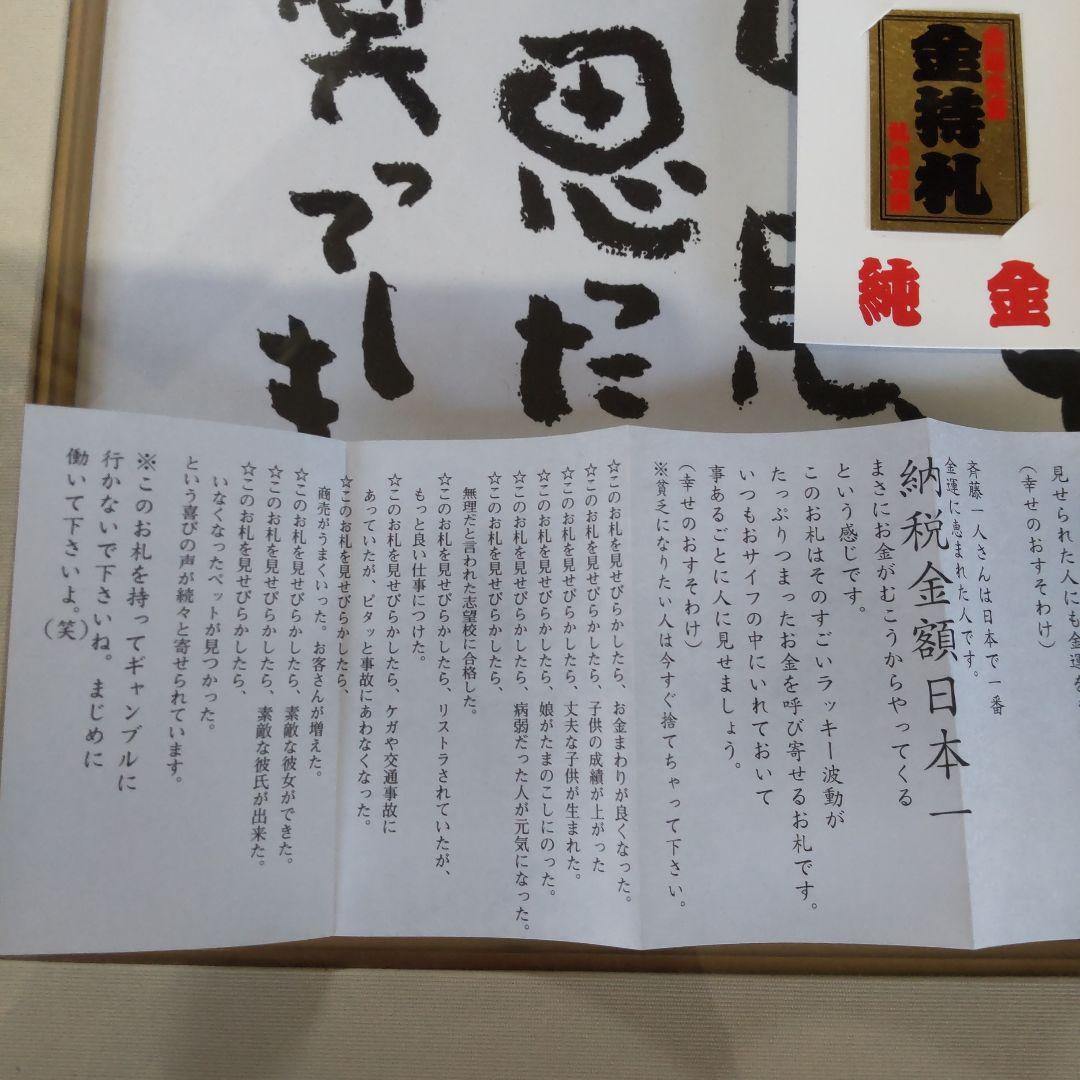 笑ってしま
思った
金持札
純金
見せられた人にも金運を
（幸せのおすそわけ）
斉藤一人さんは日本で一番
金運に恵まれた人です。
納税金額日本一
まさにお金がむこうからやってくる
という感じです。
このお札はそのすごいラッキー波動が
たっぷりつまったお金を呼び寄せるお札です。
いつもおサイフの中にいれておいて
事あるごとに人に見せましょう。
（幸せのおすそわけ）
※貧乏になりたい人は今すぐ捨てちゃって下さい。
☆このお札を見せびらかしたら、お金まわりが良くなった。
☆このお札を見せびらかしたら、子供の成績が上がった
☆このお札を見せびらかしたら、丈夫な子供が生まれた。
☆このお札を見せびらかしたら、娘がたまのこしにのった。
☆このお札を見せびらかしたら、病弱だった人が元気になった。
☆このお札を見せびらかしたら、
無理だと言われた志望校に合格した。
☆このお札を見せびらかしたら、リストラされていたが、
もっと良い仕事につけた。
☆このお札を見せびらかしたら、ケガや交通事故に
あっていたが、ピタッと事故にあわなくなった。
☆このお札を見せびらかしたら、
商売がうまくいった。お客さんが増えた。
☆このお札を見せびらかしたら、素敵な彼女ができた。
☆このお札を見せびらかしたら、素敵な彼氏が出来た。
☆このお札を見せびらかしたら、
いなくなったペットが見つかった。
という喜びの声が続々と寄せられています。
※このお札を持ってギャンブルに
行かないで下さいね。まじめに
働いて下さいよ。（笑）